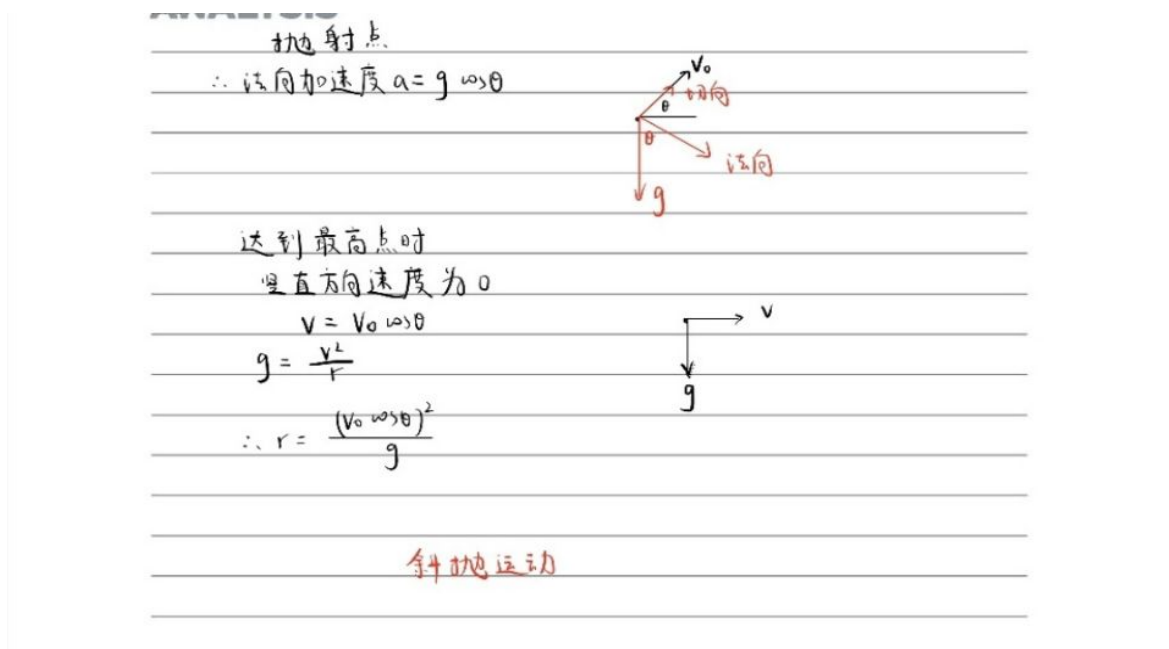 ANALYSIS
抛射点
∴ 法向加速度 a = g cosθ
V₀
切向
θ
θ
法向
g
达到最高点时
竖直方向速度为0
V = V₀ cosθ
V
g = V²/r
g
∴ r = (V₀ cosθ)²/g
斜抛运动